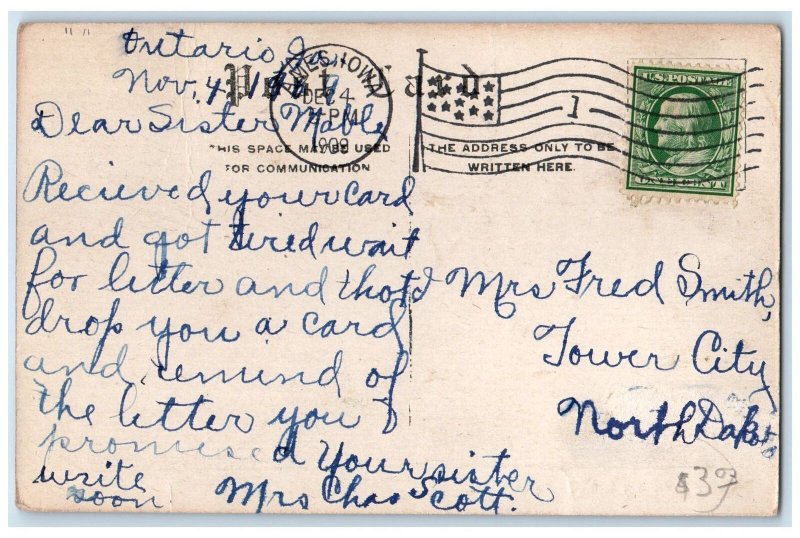 Ontario Ia
Nov. 4, 190
Post Card
AMES, IOWA
DEC 4
PM
1909
1
U.S. POSTAGE
Dear Sister Mable
THIS SPACE MAY BE USED
FOR COMMUNICATION
THE ADDRESS ONLY TO BE
WRITTEN HERE.
Recieved your card
and got tired wait
for letter and thot I
drop you a card
and remind of
the letter you
promised your sister
write
soon Mrs Chas Scott.
Mrs Fred Smith,
Tower City
North Dakota